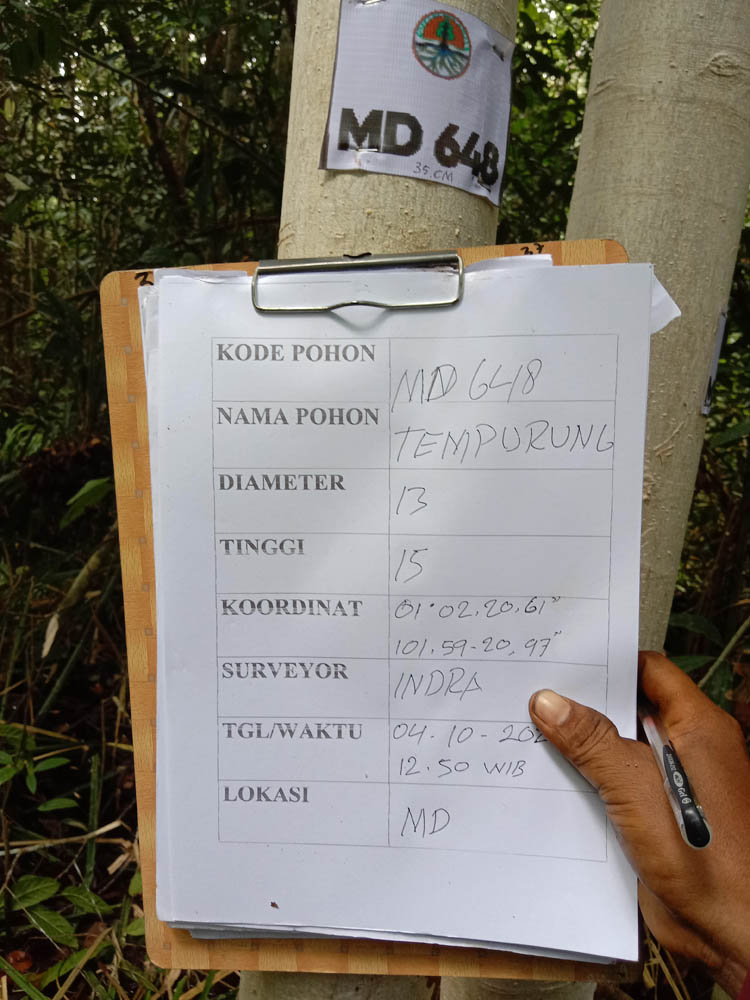 MD 648
35.CM
KODE POHON MD 648
NAMA POHON TEMPURUNG
DIAMETER 13
TINGGI 15
KOORDINAT 01°02.20,61"
101.59-20,97"
SURVEYOR INDRA
TGL/WAKTU 04-10-202
12.50 WIB
LOKASI MD